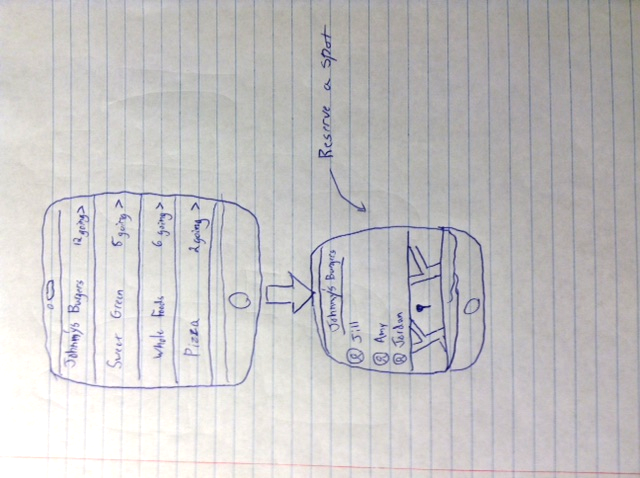 Johnny's Burgers 12 going >
Sweet Green 5 going >
Whole Foods 6 going >
Pizza 2 going >
Reserve a spot
Johnny's Burgers
Jill
Amy
Jordan